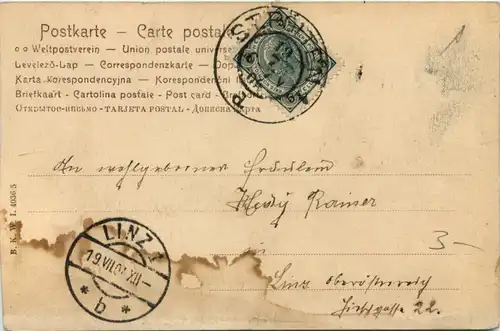 Postkarte - Carte postal
Weltpostverein - Union postale universe
Levelező-Lap - Correspondenzkarte - Dop
Karta korespondencyjna - Korespondenční
Briefkaart - Cartolina postale - Post card - Bre
Открытое-письмо - TARJETA POSTAL - Дописна карта
An wohlgeborner Fräulein
Hedy Rainer
3-
Linz oberösterreich
22.
LINZ 1
19.VII.0 XII-
* b *
B. K. W. I. 4036/5